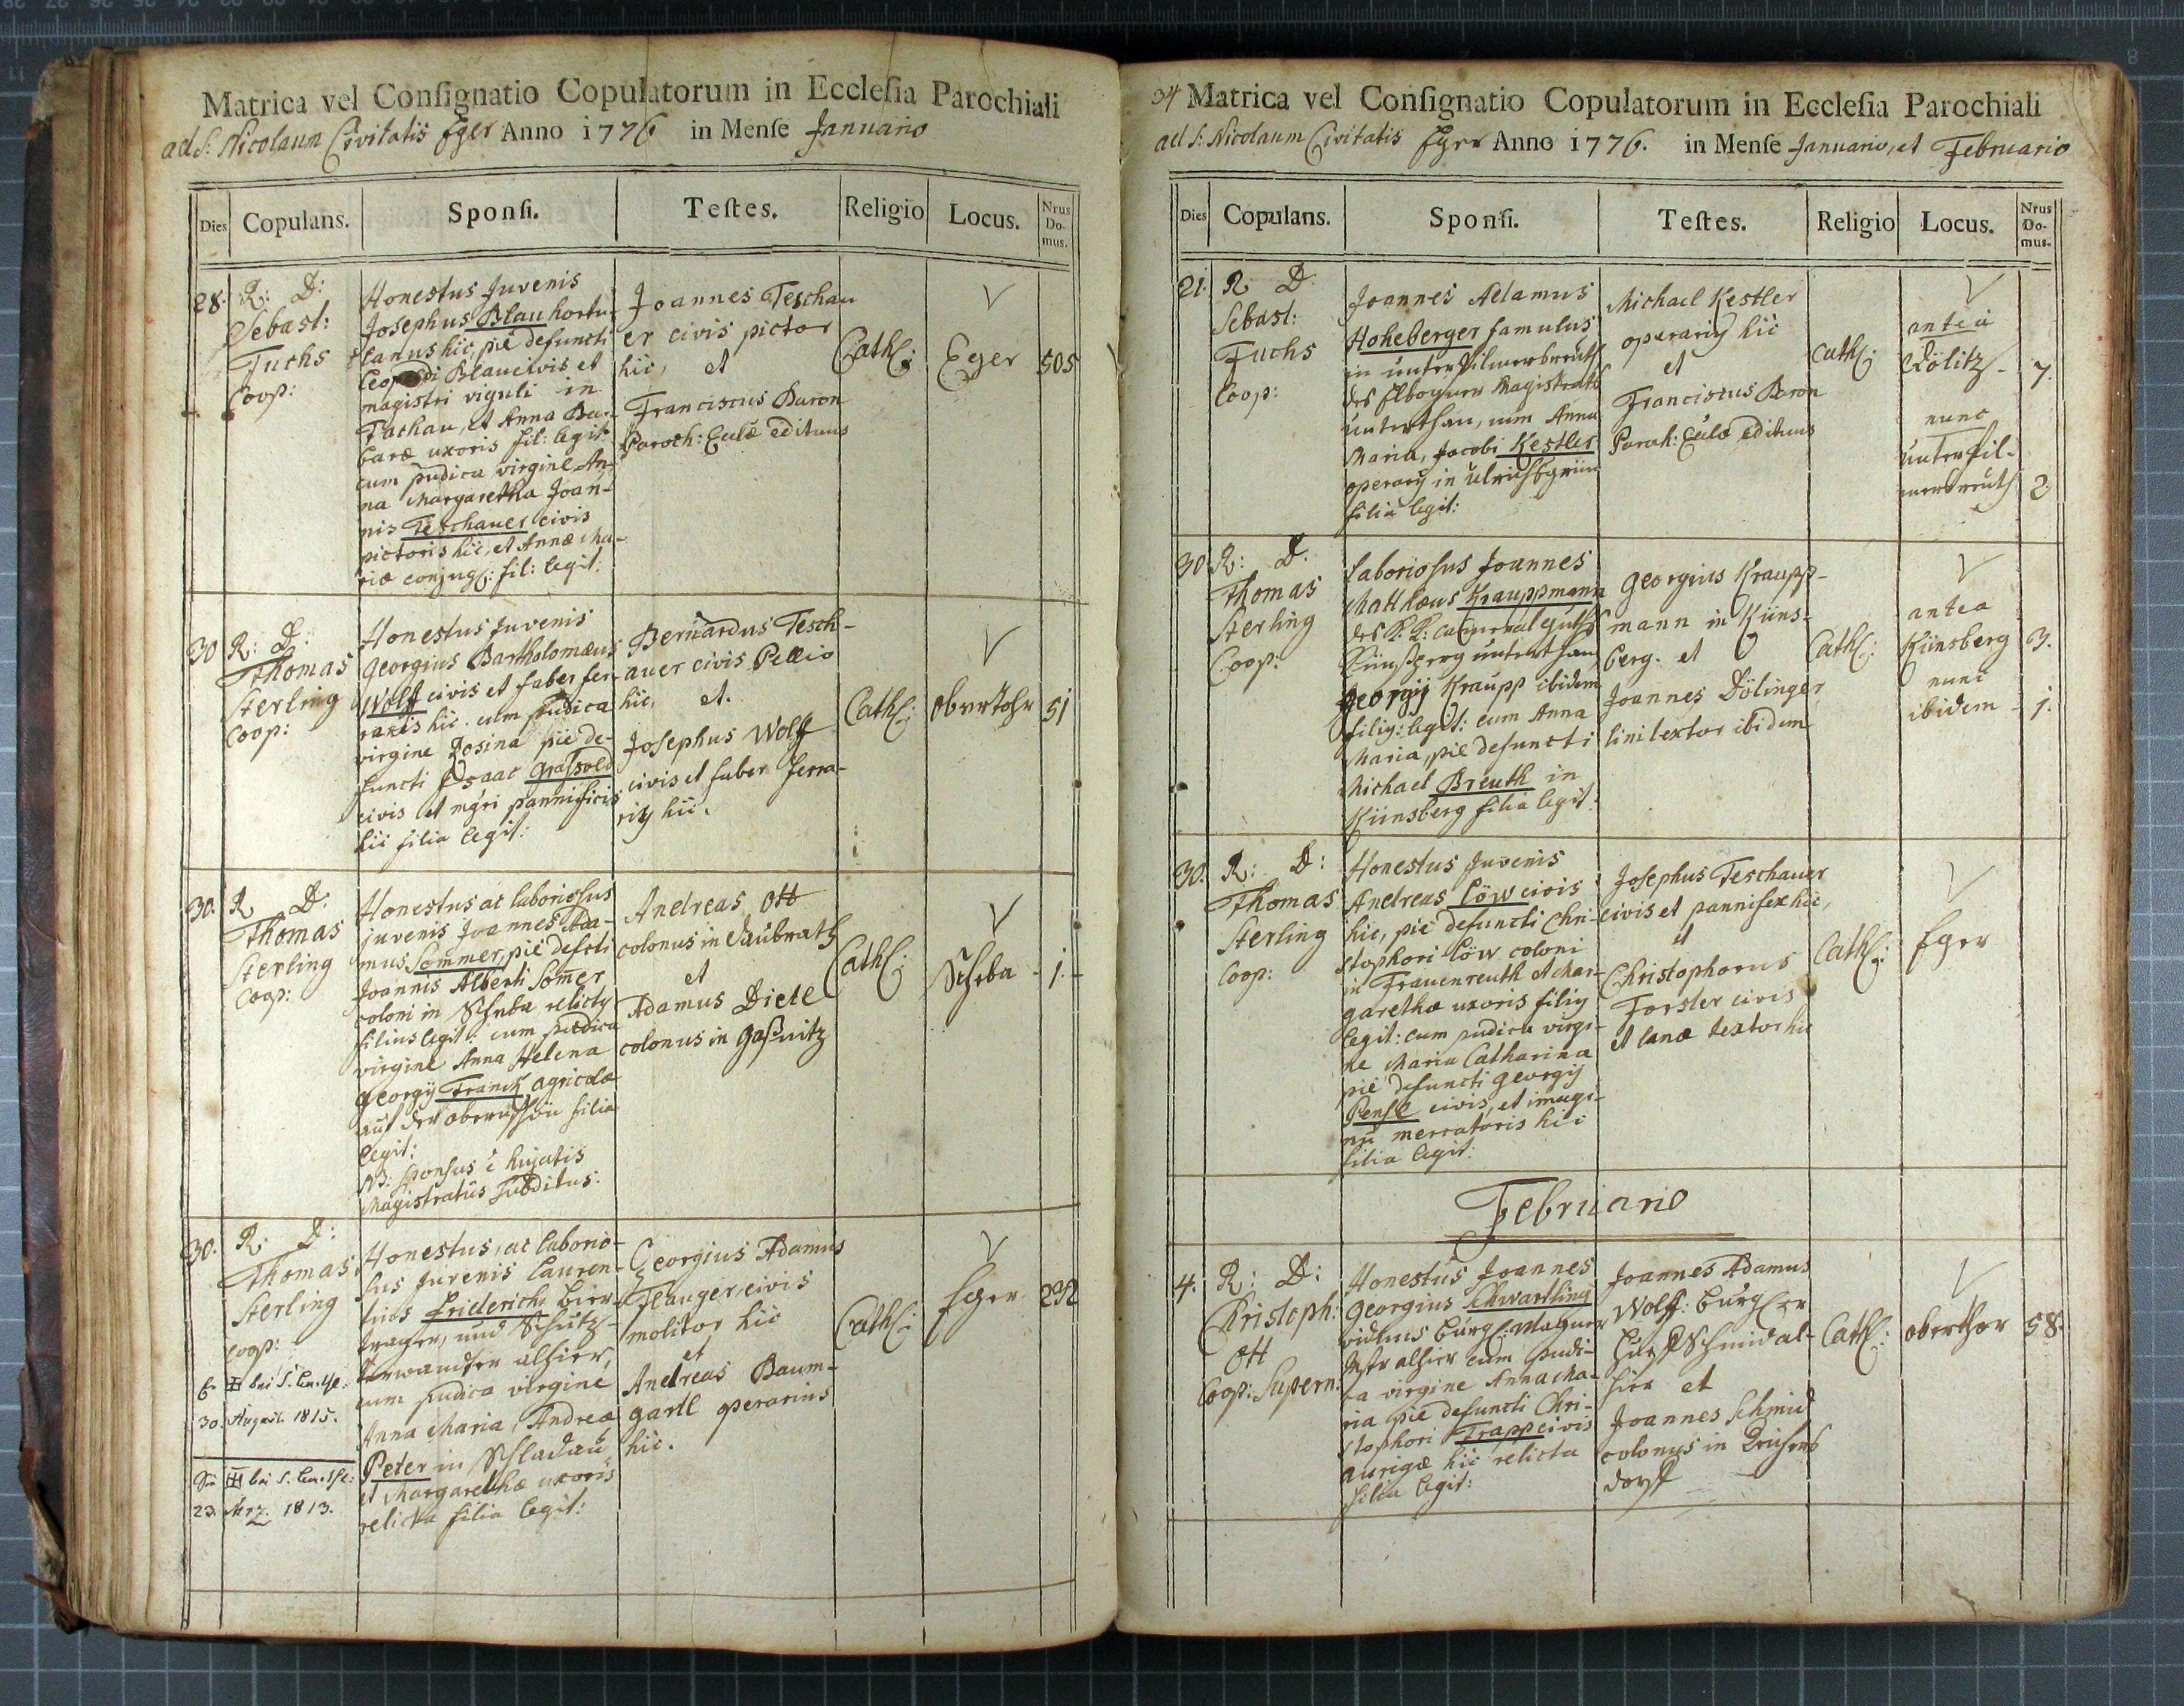 Matrica vel Consignatio Copulatorum in Ecclesia Parochiali
ad S: Nicolaum Civitatis Eger Anno 1776 in Mense Januario
Dies Copulans. Sponsi. Testes. Religio Locus. Nrus Domus.
28. R: D:
Sebast:
Fuchs
Coop:
Honestus Juvenis
Josephus Blau hortu-
lanus hic, pie defuncti
Leopoldi Blau civis et
magistri viguli in
Tachau, et Anna Bar-
baræ uxoris fil: legit:
cum pudica virgine An-
na Margaretha Joan-
nis Teschauer civis
pictoris hic, et Annæ Ma-
riæ conjug: fil: legit:
Joannes Teschau
er civis pictor
hic, et
Franciscus Baron
Paroch: Eccl͞æ edituus
Cath:
Eger 505
30 R: D:
Thomas
Sterling
Coop:
Honestus Juvenis
Georgius Bartholomæus
Wolff civis et faber fer-
rarius hic. cum pudica
virgine Rosina pie de-
functi Isaac Grassold
civis et mgri pannificis
hic filia legit:
Bernardus Tesch-
auer civis Pellio
hic, et.
Josephus Wolff
civis et faber ferra-
riy hic.
Cath:
Oberthor 51
30. R D:
Thomas
Sterling
Coop:
Honestus ac laboriosus
juvenis Joannes Ada-
mus Sommer, pie defcti
Joannis Alberti Som̄er
coloni in Scheba relicty
filius legit: cum pudica
virgine Anna Helena
Georgij Franck agricolæ
auf der obern Schön filia
legit:
NB: sponsus è hujatis
Magistratus Subditus.
Andreas Ott
colonus in Taubrath
et
Adamus Dietl
colonus in Gaßnitz
Cath:
Scheba - 1.
30. R: D:
Thomas
Sterling
coop:
Honestus, ac laborio-
sus Juvenis Lauren-
tius Friederich Bier-
trager, und Schutz-
verwandter alhier,
cum pudica virgine
Anna Maria, Andreæ
Peter in Schladau
et Margarethæ uxoris
relicta filia legit:
Er bei S.
30. August. 1815.
Sie bei S.
23. Merz. 1813.
Georgius Adamus
Flauger, civis
molitor hic
et
Andreas Baum-
gartl operarius
hic.
Cath:
Eger 292
34 Matrica vel Consignatio Copulatorum in Ecclesia Parochiali
ad S: Nicolaum Civitatis Eger Anno 1776. in Mense Januario, et Februario
Dies Copulans. Sponsi. Testes. Religio Locus. Nrus Domus.
21. R D
Sebast:
Fuchs
Coop:
Joannes Adamus
Hoheberger famulus
in unter Pilmersreuth
des Elbogner Magistrats
unterthan, cum Anna
Maria, Jacobi Kestler
operarij in Ulrichsgrün
filia legit:
Michael Kestler
operariy hic
et
Franciscus Baron
Paroch: Eccl͞æ edituus
Cath:
antea
Dölitz - 7.
nunc
unter Pil-
mersreuth 2.
30 R: D.
Thomas
Sterling
Coop:
Laboriosus Joannes
Matthæus Krauppmann
des K. K: Cammeral guths
Künßperg unterthan,
Georgij Kraupp ibidem
filiy: legit: cum Anna
Maria, pie defuncti
Michael Breuth in
Künsberg filia legit:
Georgius Kraupp-
mann in Küns-
berg. et
Joannes Dölinger
lini textor ibidem
Cath:
antea
Künsberg 3.
nunc
ibidem - 1.
30. R: D:
Thomas
Sterling
Coop:
Honestus Juvenis
Andreas Löw civis
hic, pie defuncti Chri-
stophori Löw coloni
in Frauenreuth et Mar-
garethæ uxoris filiy
legit: cum pudica virgi-
ne Maria Catharina
pie defuncti Georgij
Pensl civis, et imagi-
nū mercatoris hic
filia legit:
Josephus Teschauer
civis et pannifex hic,
et
Christophorus
Forster civis
et lanæ textor hic
Cath:
Eger
Februario
4. R: D:
Christoph:
Ott
Coop: Supern:
Honestus Joannes
Georgius Schwartling
viduus bürgl: Wagner
Mstr alhier cum pudi-
ca virgine Anna Ma-
ria pie defuncti Chri-
stophori Trapp civis
aurigæ hic relicta
filia legit:
Joannes Adamus
Wolff: bürgl er
Huefschmid al-
hier et
Joannes Schmid
colonus in
dorff
Cath:
oberthor 58.